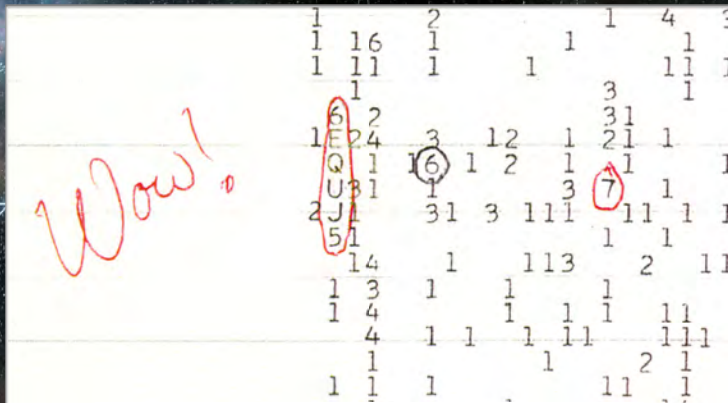 1 2 1 4
1 16 1 1 1
1 11 1 1 11 1
1 3 1
6 2 31
1 E24 3 12 1 21 1
Q 1 16 1 2 1 1 1
Wow! U31 1 3 7 1
2 J1 31 3 111 11 1 1
51 1 1
14 1 113 2 11
1 3 1 1 1
1 4 1 1 1 11
4 1 1 1 11 111
1 1 2 1
1 1 1 11 1